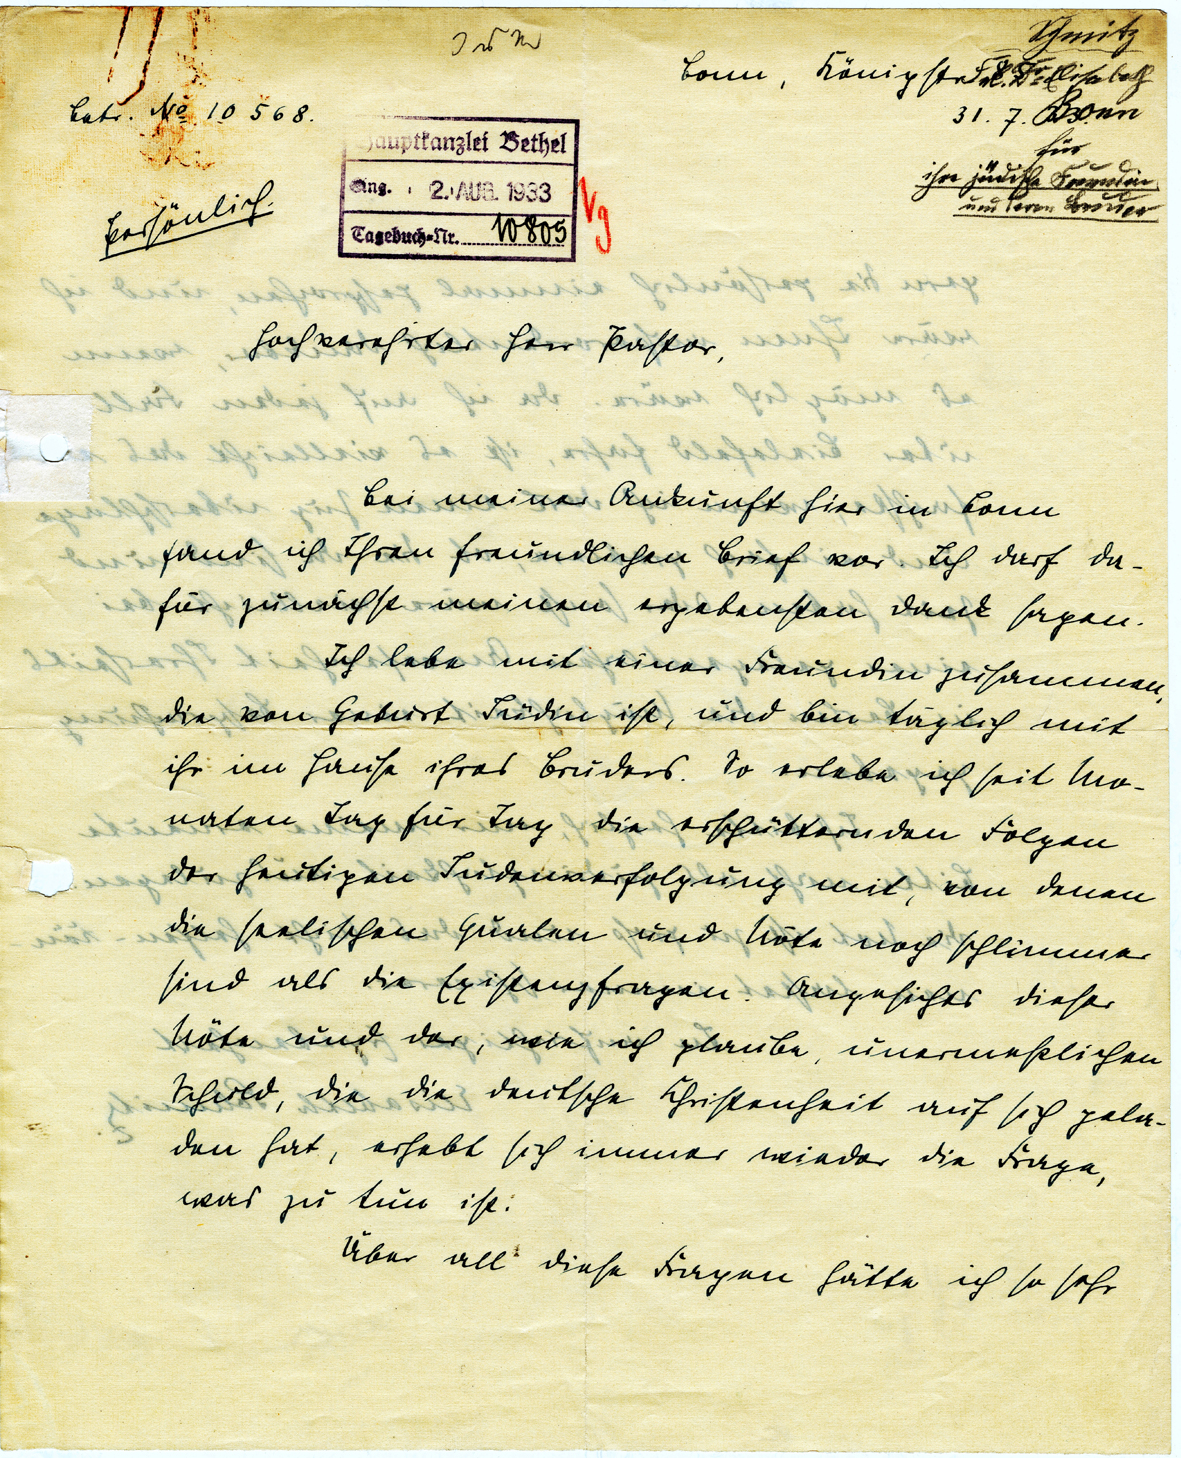 Schmitz
Bonn, Königstr.
Frl. Dr. Elisabeth
Betr. No 10568.
31. 7.
Bonn
für
ihre jüdische Freundin
und deren Bruder
Hauptkanzlei Bethel
Eing. 2. AUG. 1933
Tagebuch-Nr. 10805
Persönlich.
Hochverehrter Herr Pastor,
Bei meiner Ankunft hier in Bonn
fand ich Ihren freundlichen Brief vor. Ich darf da-
für zunächst meinen ergebensten Dank sagen.
Ich lebe mit einer Freundin zusammen,
die von Geburt Jüdin ist, und bin täglich mit
ihr im Hause ihres Bruders. So erlebe ich seit Mo-
naten Tag für Tag die erschütternden Folgen
der heutigen Judenverfolgung mit, von denen
die seelischen Qualen und Nöte noch schlimmer
sind als die Existenzfragen. Angesichts dieser
Nöte und der, wie ich glaube, unermeßlichen
Schuld, die die deutsche Christenheit auf sich gela-
den hat, erhebt sich immer wieder die Frage,
was zu tun ist.
Über all diese Fragen hätte ich so sehr